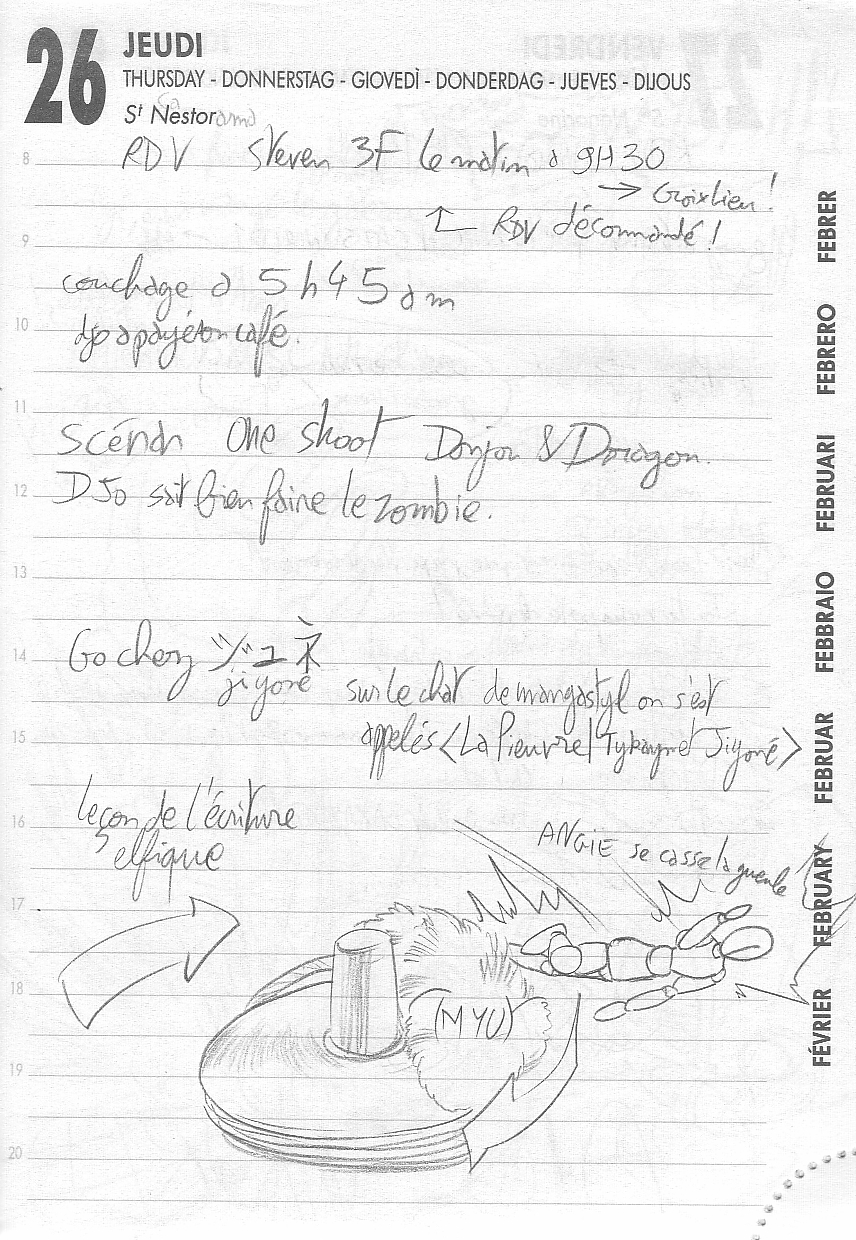 26 JEUDI
THURSDAY - DONNERSTAG - GIOVEDÌ - DONDERDAG - JUEVES - DIJOUS
St Nestor
8
RDV Steven 3F le matin à 9H30
→ Croixlieu!
← RDV décommandé!
9
couchage à 5h45 am
10
djo a payé ton café.
11
Scénar One shoot Donjon & Doragon.
12
DJo sait bien faire le zombie.
13
14
Go chery ヅュネ
jiyoné
sur le chat de mangastyl on s'est
15
appelés <La Pieuvre| Tykayn et Jiyoné>
leçon de l'écriture
16
elfique
ANGIE se casse la gueule
17
18
(MYU)
19
20
FEBRER
FEBRERO
FEBRUARI
FEBBRAIO
FEBRUAR
FEBRUARY
FÉVRIER